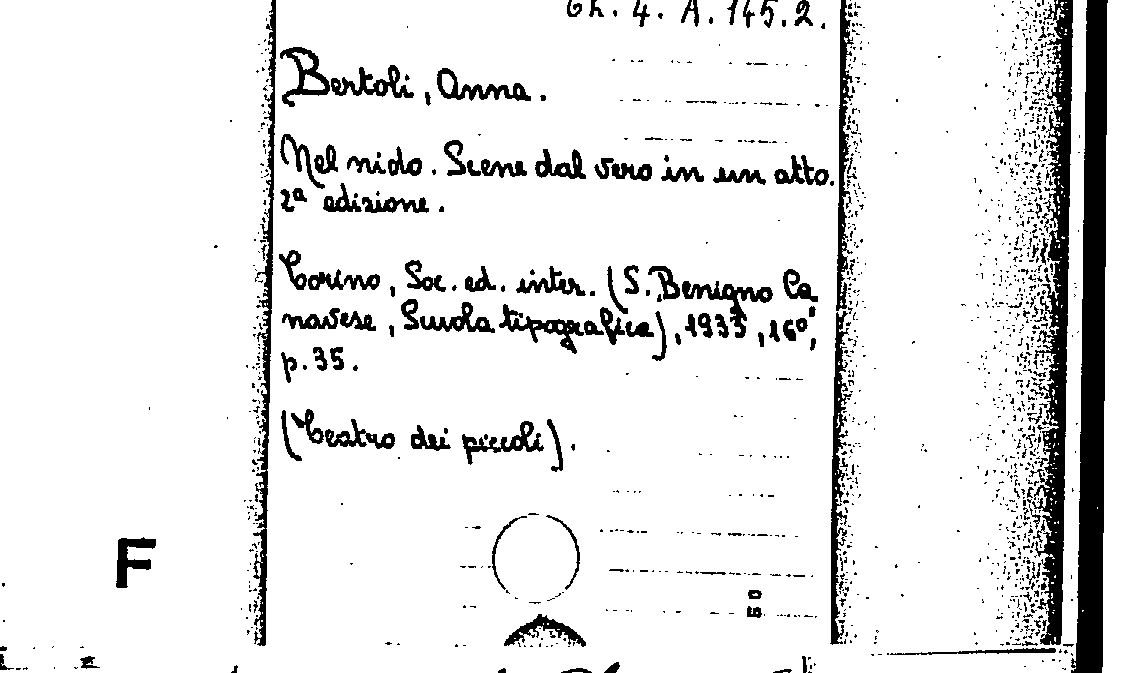 Gh. 4. A. 145.2.
Bertoli, Anna.
Nel nido. Scene dal vero in un atto.
2ª edizione.
Torino, Soc. ed. inter. (S. Benigno Ca
navese, Scuola tipografica), 1933, 16º,
p. 35.
(Teatro dei piccoli).
F
50